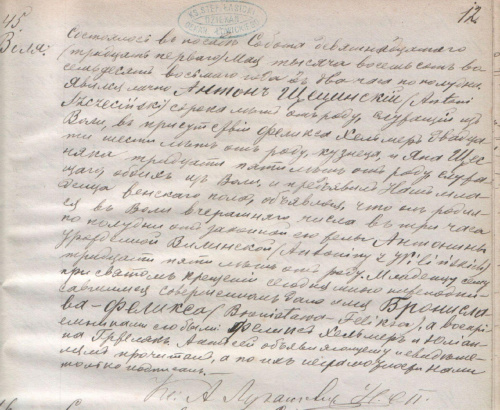 12
45
Воля.
Состоялось въ посадѣ Собота девятнадцатаго
(тридцать перваго) Мая тысяча восемьсотъ во-
семьдесятъ восьмаго года въ два часа по полудни.
Явился лично Антонъ Щецинскій (Antoni
сорока лѣтъ отъ роду, служащій изъ
Воли, въ присутствіи Феликса Хельмеръ двадца-
ти шести лѣтъ отъ роду, кузнеца, и Яна Щес-
няка тридцати пяти лѣтъ отъ роду служа-
щаго обоихъ изъ Воли, и предъявилъ Намъ мла-
денца женскаго пола, объявляя, что онъ родил-
ся въ Воли вчерашняго числа въ три часа
по полудни отъ законной его жены Антонины
урожденной Вилинской (Antoniny z
тридцати пяти лѣтъ отъ роду. Младенцу сему
при святомъ крещеніи сегодня нами
совершенномъ дано имя Бронисла-
ва-Феликса (Bronisława-Feliksa), а воспрі-
емниками его были Феликсъ Хельмеръ и Юліан-
на Актъ сей объявляющему и свидѣте-
лямъ прочитанъ, а по ихъ неграмотности нами
только подписанъ.
Кс. А.